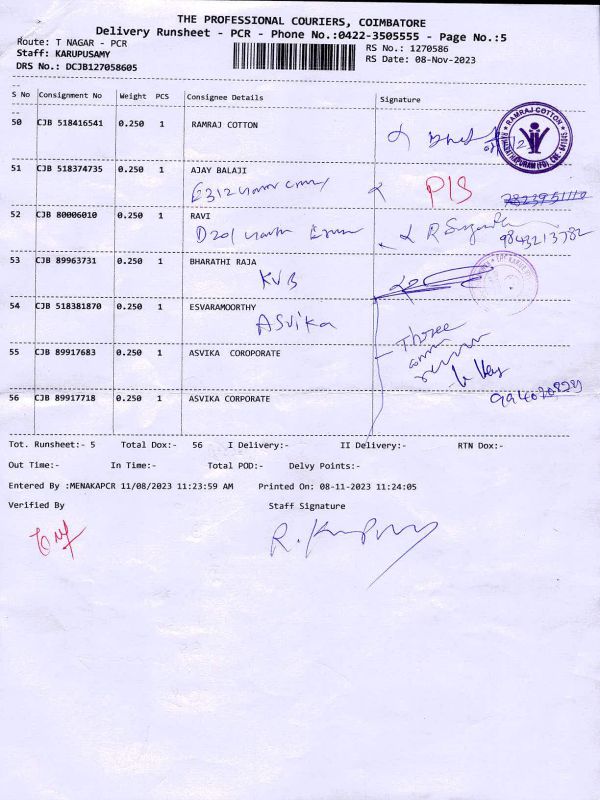 THE PROFESSIONAL COURIERS, COIMBATORE
Delivery Runsheet - PCR - Phone No.:0422-3505555 - Page No.:5
Route: T NAGAR - PCR
RS No.: 1270586
Staff: KARUPUSAMY
RS Date: 08-Nov-2023
DRS No.: DCJB127058605
S No Consignment No Weight PCS Consignee Details Signature
50 CJB 518416541 0.250 1 RAMRAJ COTTON
RAMRAJ COTTON
51 CJB 518374735 0.250 1 AJAY BALAJI
E312
P/S
52 CJB 80006010 0.250 1 RAVI
D201
9843213782
53 CJB 89963731 0.250 1 BHARATHI RAJA
KVB
54 CJB 518381870 0.250 1 ESVARAMOORTHY
ASVika
Three
55 CJB 89917683 0.250 1 ASVIKA COROPORATE
56 CJB 89917718 0.250 1 ASVIKA CORPORATE
Tot. Runsheet:- 5 Total Dox:- 56 I Delivery:- II Delivery:- RTN Dox:-
Out Time:- In Time:- Total POD:- Delvy Points:-
Entered By :MENAKAPCR 11/08/2023 11:23:59 AM Printed On: 08-11-2023 11:24:05
Verified By Staff Signature